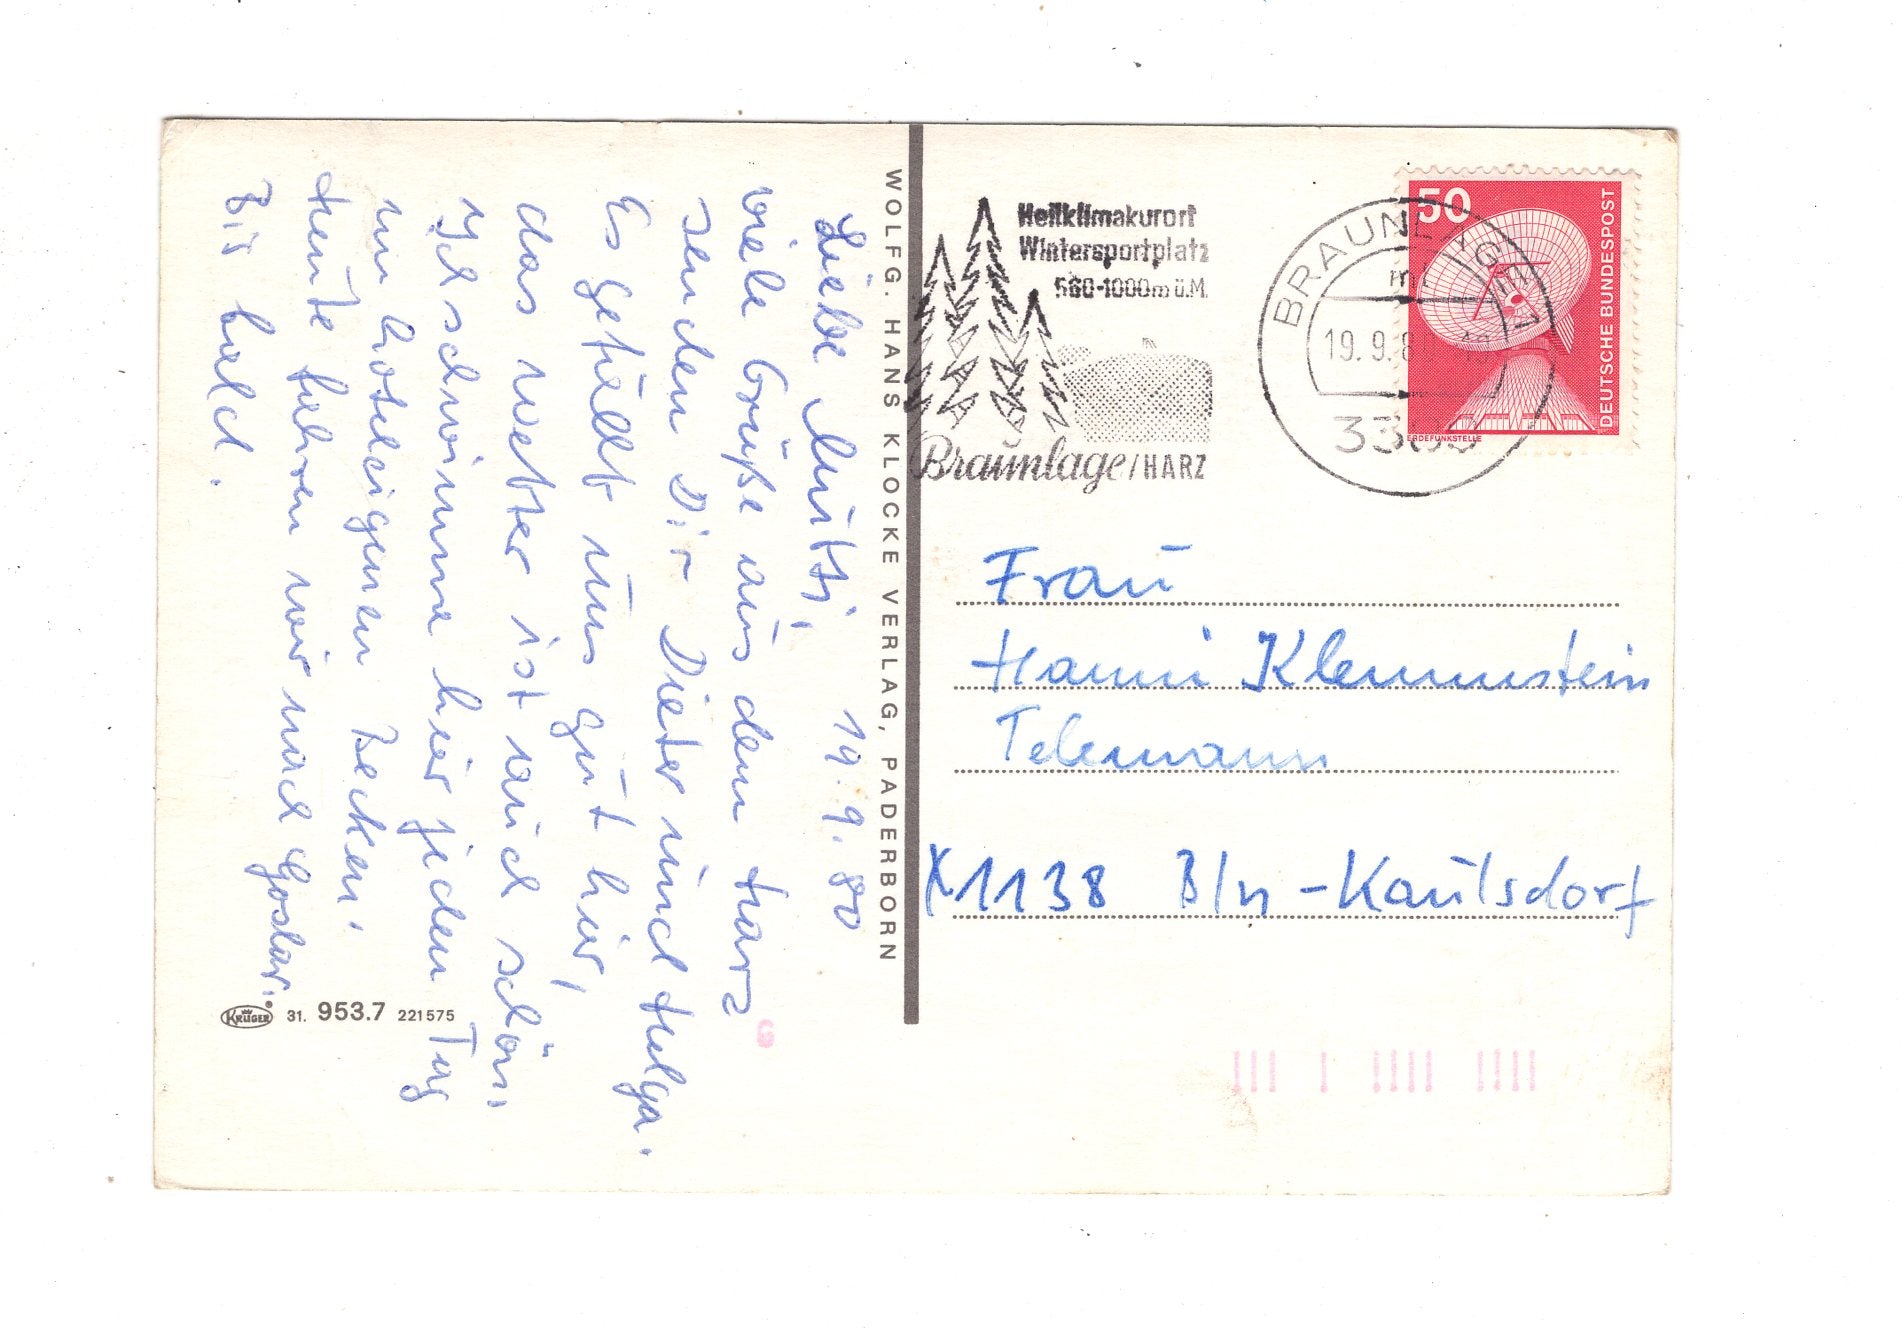 Liebe Mutti, 19.9.80
viele Grüße aus dem Harz
senden Dir Dieter und Helga.
Es gefällt uns gut hier,
das Wetter ist auch schön.
Ich schwimme hier jeden Tag
im hoteleigenen Becken.
Heute fahren wir nach Goslar.
Bis bald.
KRÜGER 31. 953.7 221575
WOLFG. HANS KLOCKE VERLAG, PADERBORN
Heilklimakurort
Wintersportplatz
560-1000m ü.M.
Braunlage/HARZ
BRAUNLAGE 1
ml
19. 9. 8
33
50
DEUTSCHE BUNDESPOST
ERDEFUNKSTELLE
Frau
Hanni Klemmstein
Telemann
X1138 Bln-Kaulsdorf
6